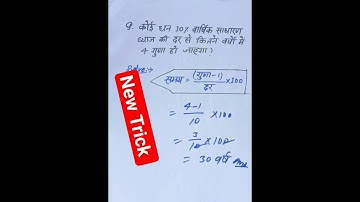 9. कोई धन 10% वार्षिक साधारण
ब्याज की दर से कितने वर्षों में
4 गुना हो जाएगा?
Solve:-
समय = (गुना-1)/दर ×100
= 4-1/10 ×100
= 3/10 ×100
= 30 वर्ष Ans
New Trick